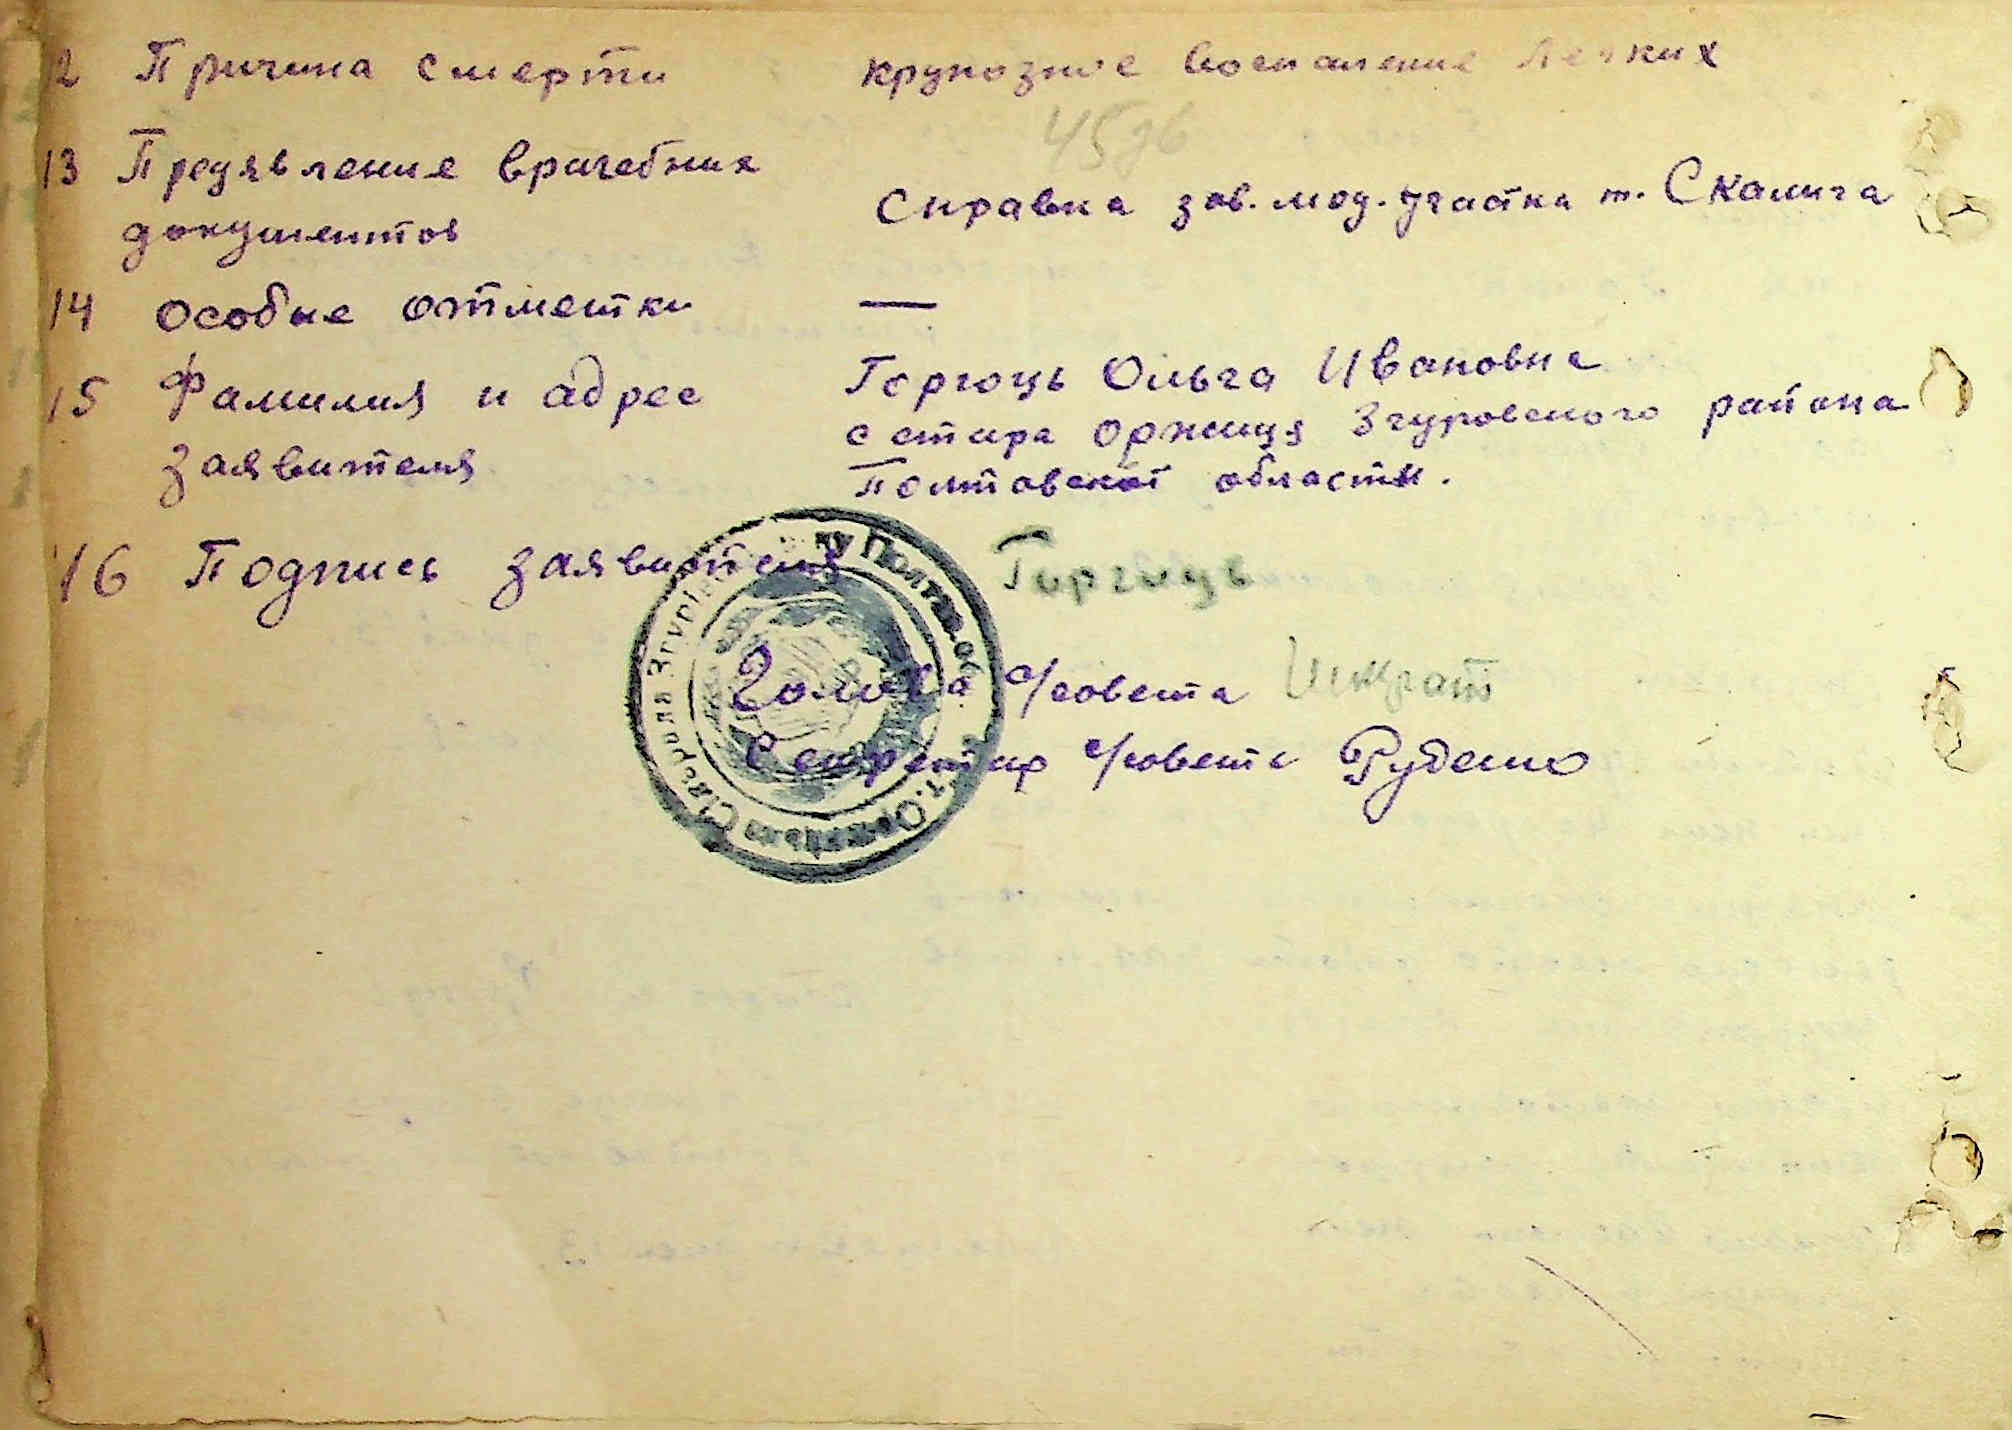 2 Причина смерти крупозное воспаление легких
45
13 Предявление врачебних
документов
Справка зав. мед. участка т. Скалига
14 Особые отметки —
15 Фамилия и адрес
заявителя
Горгоць Ольга Ивановна
с стара Оржица Згуровского района
Полтавской области.
16 Подпись заявителя Горгоць
Голова с/совета
Секретар с/совета Руденко
Полтав. об